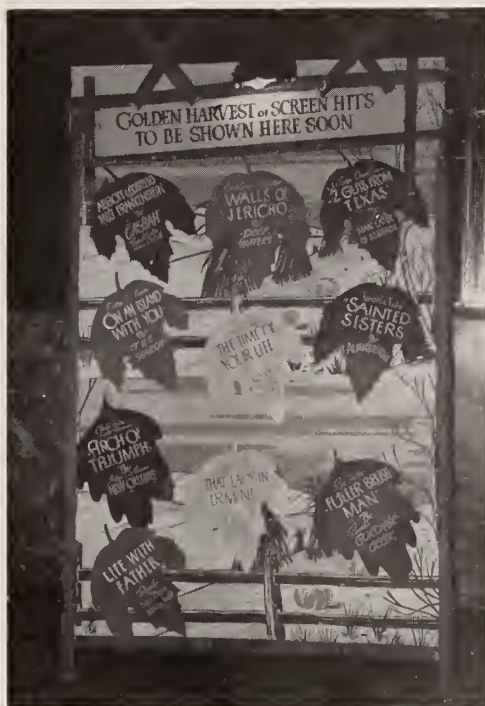 GOLDEN HARVEST OF SCREEN HITS
TO BE SHOWN HERE SOON
ABBOTT & COSTELLO
MEET FRANKENSTEIN
CASBAH
WALLS OF
JERICHO
DEEP
WATERS
2 GUYS FROM
TEXAS
ON AN ISLAND
WITH YOU
THE TIME OF
YOUR LIFE
SAINTED
SISTERS
ALBUQUERQUE
ARCH OF
TRIUMPH
NEW ORLEANS
THAT LADY IN
ERMINE
FULLER BRUSH
MAN
LIFE WITH
FATHER